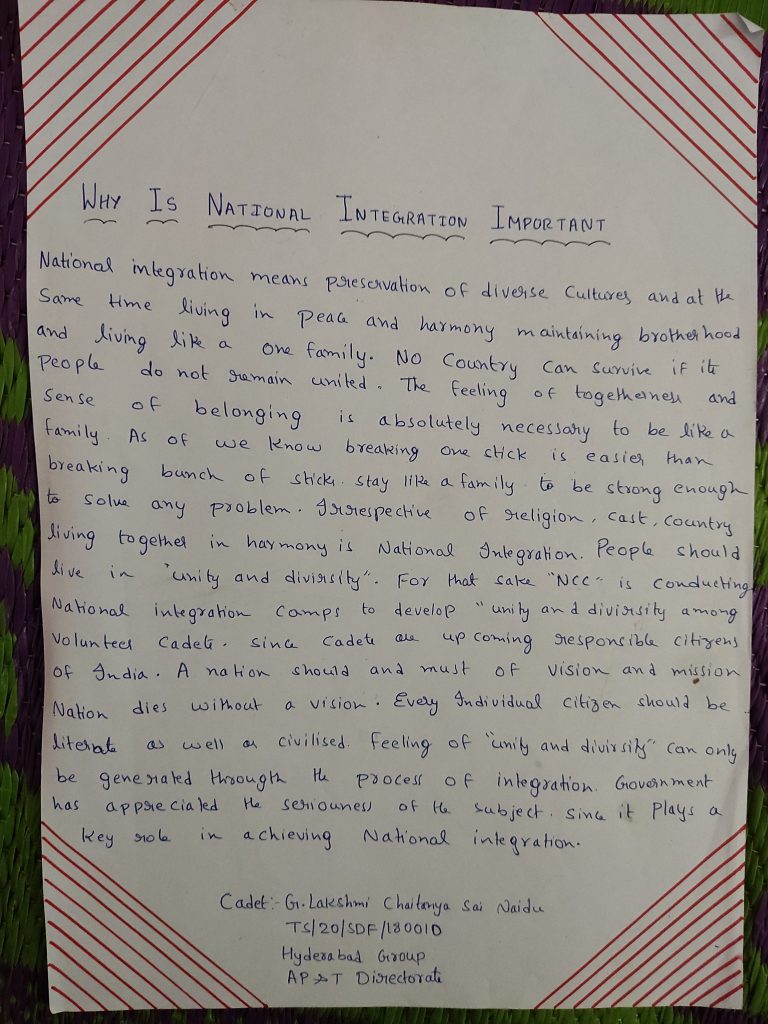 WHY IS NATIONAL INTEGRATION IMPORTANT
National integration means preservation of diverse Cultures and at the
Same time living in peace and harmony maintaining brotherhood
and living like a one family. NO Country Can Survive if its
People do not remain united. The feeling of togetherness and
Sense of belonging is absolutely necessary to be like a
family. As of we know breaking one stick is easier than
breaking bunch of sticks. stay like a family to be strong enough
to solve any problem. Irrespective of religion, cast, country
living together in harmony is National Integration. People should
live in "unity and divirsity". For that sake "NCC" is conducting
National integration camps to develop "unity and divirsity among
Volunteer Cadets. Since Cadets are up coming responsible citizens
of India. A nation should and must of vision and mission
Nation dies without a vision. Every Individual citizen should be
literate as well as civilised. Feeling of "unity and divirsity" can only
be generated through the process of integration. Government
has appreciated the seriouness of the subject. Since it Plays a
key role in achieving National integration.
Cadet:- G. Lakshmi Chaitanya Sai Naidu
TS/20/SDF/180010
Hyderabad Group
AP & T Directorate